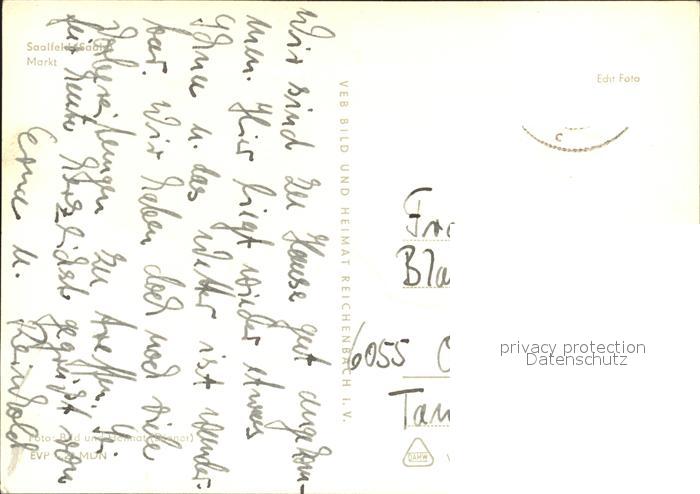 Saalfeld (Saale)
Markt
Wir sind zu Hause gut angekom-
men. Hier liegt wieder etwas
u. das Wetter ist wunder-
bar. Wir haben doch noch viele
Vorbereitungen zu treffen.
für heute herzlichst gegrüßt von
Erna u. Reinhold
VEB BILD UND HEIMAT REICHENBACH I. V.
Foto: Bild und Heimat
EVP MDN
Edit Foto
Fra
Bla
6055
Tan
DAMW
privacy protection
Datenschutz